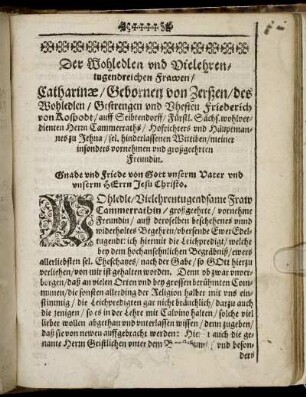 Der Wohledlen vnd Vielehren-
tugendreichen Frawen/
Catharinæ/ Gebornen von Zerßen/ des
Wohledlen/ Gestrengen vnd Vhesten Friederich
von Kospodt/ auff Seibtendorff/ Fürstl. Sächs. wohlver-
dienten Herrn Cammerraths/ Hofrichters vnd Häuptman-
nes zu Jehna/ sel. hinderlassenen Wittiben/ meiner
insonders vornehmen vnd großgeehrten
Freundin.
Gnade vnd Friede von Gott vnserm Vater vnd
vnserm HErrn Jesu Christo.
WOhledle/ Vielehrentugendsame Fraw
Cammerräthin/ großgeehrte/ vornehme
Freundin/ auff deroselben beschehenes vnnd
widerholtes Begehren/ übersende Ewer Edel-
tugendt: ich hiermit die Leichpredigt/ welche
bey dem hochansehnlichen Begräbniß/ ewers
allerliebsten sel. Eheschatzes/ nach der Gabe/ so GOtt hierzu
verliehen/ von mir ist gehalten worden. Denn ob zwar vnvor-
borgen/ daß an vielen Orten vnd bey grossen berühmten Com-
munen/ die sonsten allerding der Religion halber mit vns ein-
stimmig/ die Leichpredigten gar nicht bräuchlich/ darzu auch
die jenigen/ so es in der Lehre mit Calvino halten/ solche viel
lieber wollen abgethan vnd vnterlassen wissen/ denn zugeben/
daß sie von newen auffgebracht werden: Hier auch die ge-
nante Herrn Geistlichen vnter dem vnd beson-
ders